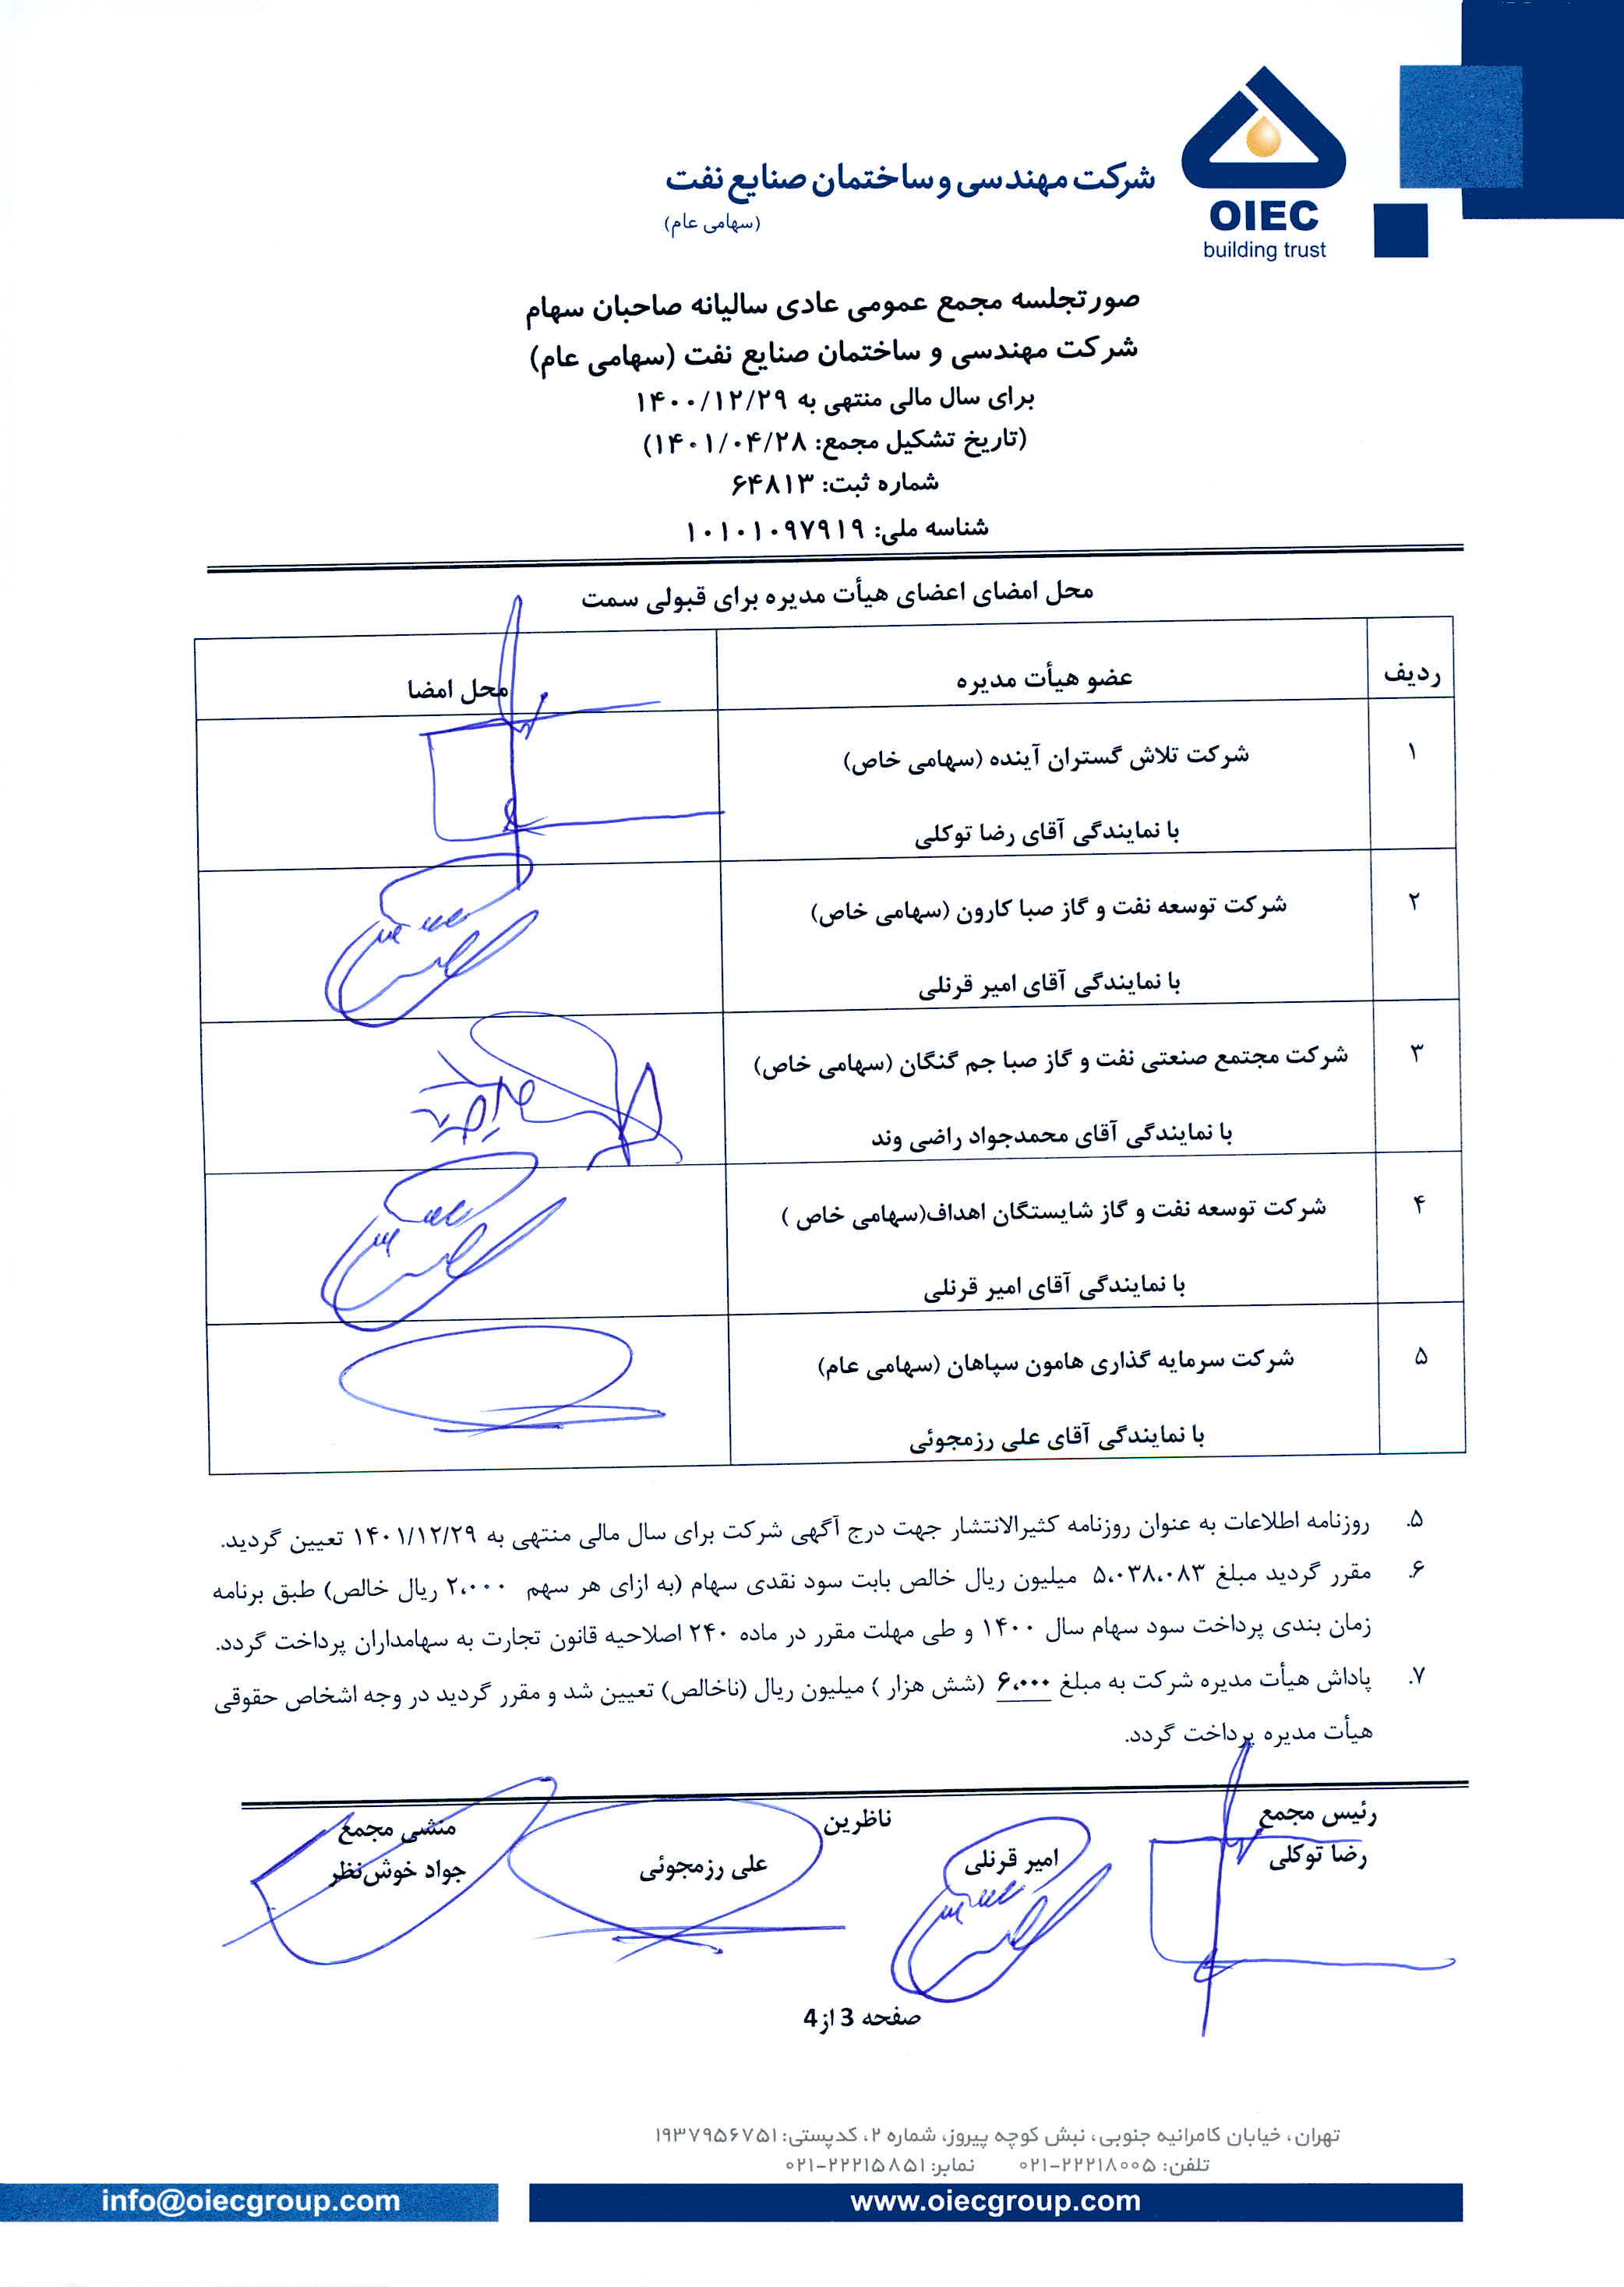 شرکت مهندسی و ساختمان صنایع نفت
(سهامی عام)
OIEC
building trust
صورتجلسه مجمع عمومی عادی سالیانه صاحبان سهام
شرکت مهندسی و ساختمان صنایع نفت (سهامی عام)
برای سال مالی منتهی به ۱۴۰۰/۱۲/۲۹
(تاریخ تشکیل مجمع: ۱۴۰۱/۰۴/۲۸)
شماره ثبت: ۶۴۸۱۳
شناسه ملی: ۱۰۱۰۱۰۹۷۹۱۹
محل امضای اعضای هیأت مدیره برای قبولی سمت
ردیف عضو هیأت مدیره محل امضا
۱ شرکت تلاش گستران آینده (سهامی خاص)
با نمایندگی آقای رضا توکلی
۲ شرکت توسعه نفت و گاز صبا کارون (سهامی خاص)
با نمایندگی آقای امیر قرنلی
۳ شرکت مجتمع صنعتی نفت و گاز صبا جم گنگان (سهامی خاص)
با نمایندگی آقای محمدجواد راضی وند
۴ شرکت توسعه نفت و گاز شایستگان اهداف(سهامی خاص )
با نمایندگی آقای امیر قرنلی
۵ شرکت سرمایه گذاری هامون سپاهان (سهامی عام)
با نمایندگی آقای علی رزمجوئی
۵. روزنامه اطلاعات به عنوان روزنامه کثیرالانتشار جهت درج آگهی شرکت برای سال مالی منتهی به ۱۴۰۱/۱۲/۲۹ تعیین گردید.
۶. مقرر گردید مبلغ ۵،۰۳۸،۰۸۳ میلیون ریال خالص بابت سود نقدی سهام (به ازای هر سهم ۲،۰۰۰ ریال خالص) طبق برنامه
زمان بندی پرداخت سود سهام سال ۱۴۰۰ و طی مهلت مقرر در ماده ۲۴۰ اصلاحیه قانون تجارت به سهامداران پرداخت گردد.
۷. پاداش هیأت مدیره شرکت به مبلغ ۶،۰۰۰ (شش هزار ) میلیون ریال (ناخالص) تعیین شد و مقرر گردید در وجه اشخاص حقوقی
هیأت مدیره پرداخت گردد.
رئیس مجمع ناظرین منشی مجمع
رضا توکلی امیر قرنلی علی رزمجوئی جواد خوش‌نظر
صفحه 3 از 4
تهران، خیابان کامرانیه جنوبی، نبش کوچه پیروز، شماره ۲، کدپستی: ۱۹۳۷۹۵۶۷۵۱
تلفن: ۰۲۱-۲۲۲۱۸۰۰۵ نمابر: ۰۲۱-۲۲۲۱۵۸۵۱
info@oiecgroup.com www.oiecgroup.com